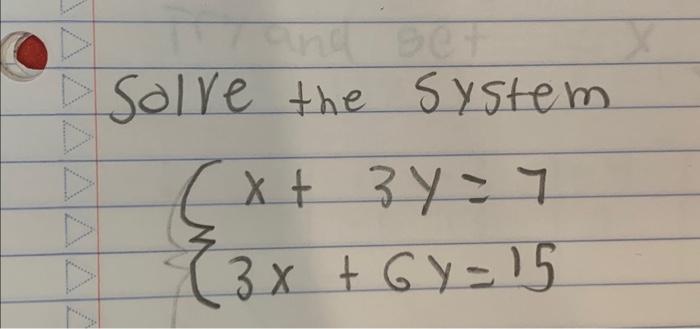 Try and set x
Solve the system
x + 3y = 7
3x + 6y = 15